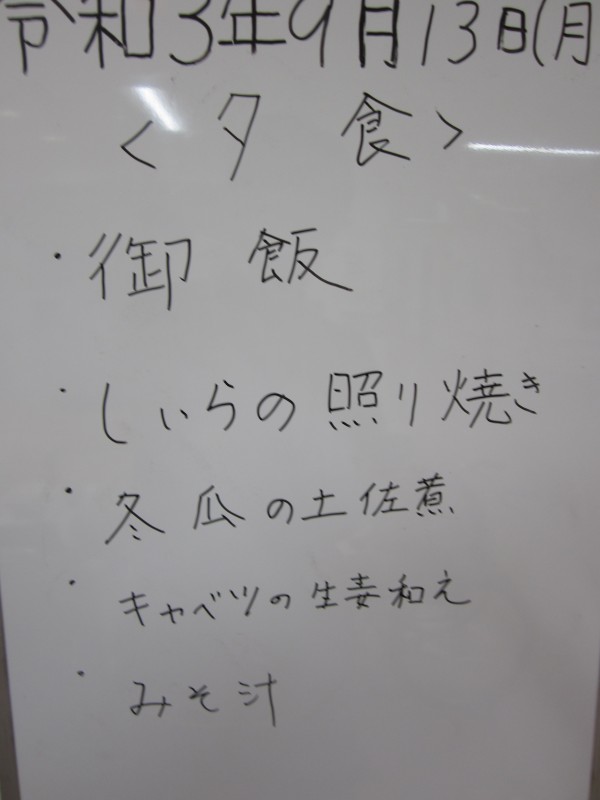 令和3年9月13日(月
<夕 食>
・御 飯
・しいらの照り焼き
・冬瓜の土佐煮
・キャベツの生姜和え
・みそ汁